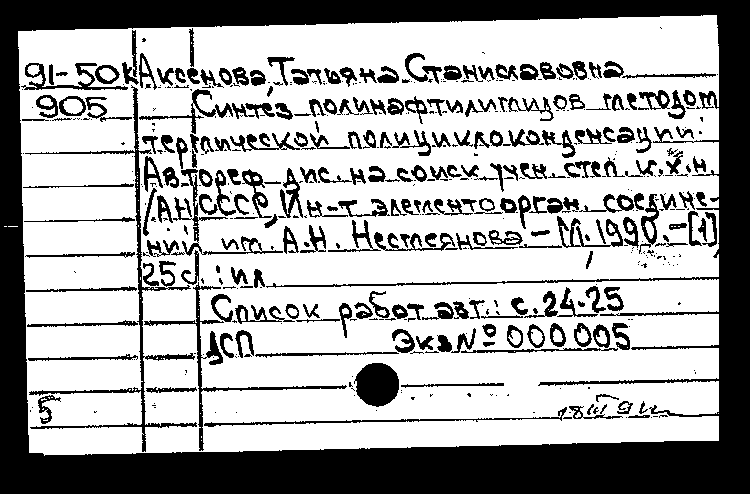 91-50к Аксенова, Татьяна Станиславовна
905 Синтез полинафтилимидов методом
термической полициклоконденсации:
Автореф. дис. на соиск. учен. степ. к.х.н.
/АН СССР, Ин-т элементоорган. соедине-
ний им. А.Н. Несмеянова. - М., 1990. - [1],
25с. : ил.
Список работ авт.: с. 24-25
1СП Экз № 000005
5